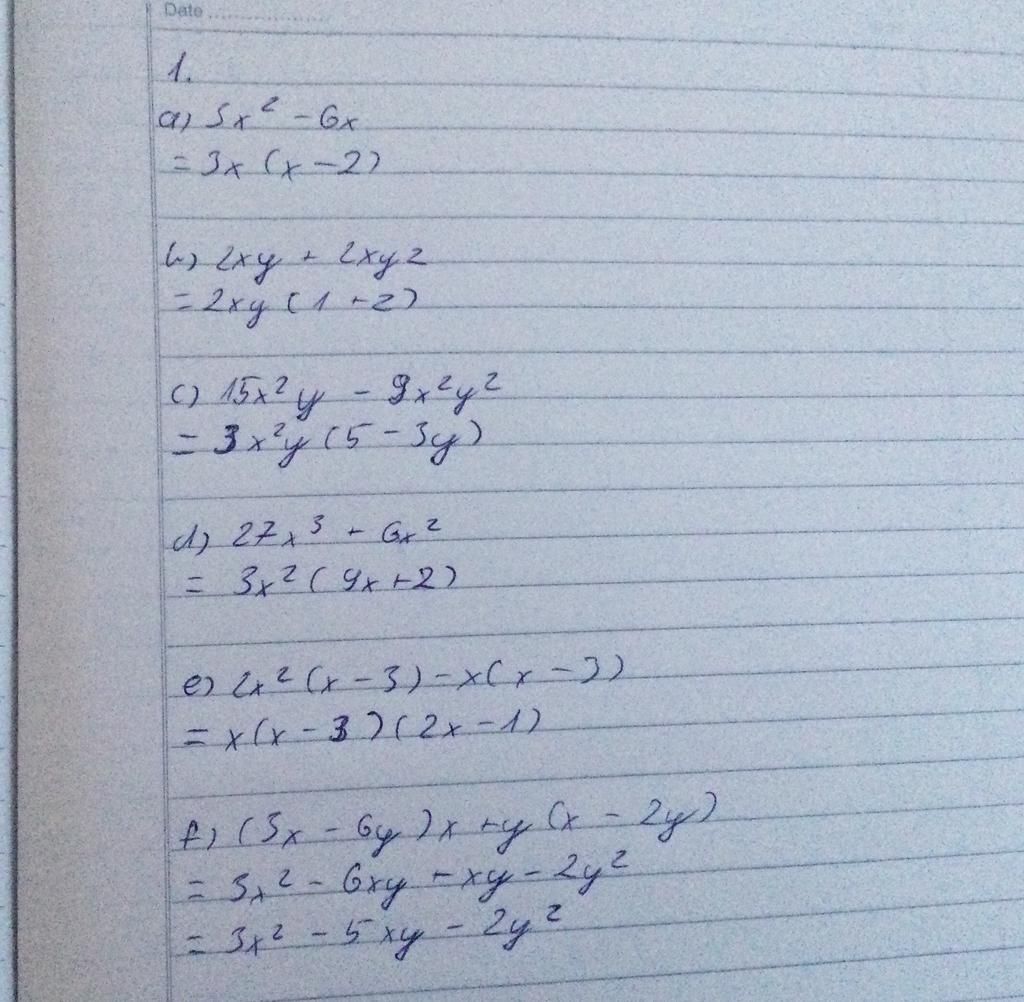 Date ....................
1.
a) 3x² - 6x
= 3x (x - 2)
b) 2xy + 2xyz
= 2xy (1 + z)
c) 15x²y - 9x²y²
= 3x²y (5 - 3y)
d) 27x³ + 6x²
= 3x² (9x + 2)
e) 2x² (x - 3) - x(x - 3)
= x(x - 3)(2x - 1)
f) (3x - 6y)x + y(x - 2y)
= 3x² - 6xy + xy - 2y²
= 3x² - 5xy - 2y²